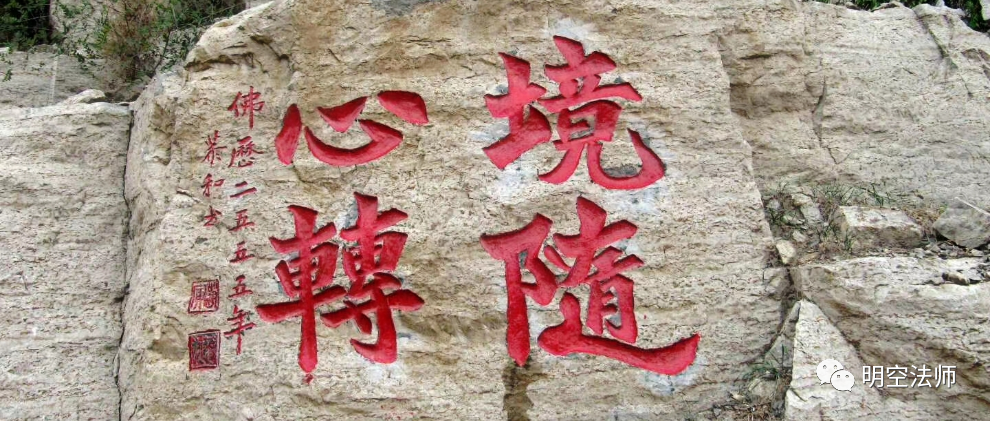 境隨
心轉
佛曆二五五五年
慕和书
明空法师